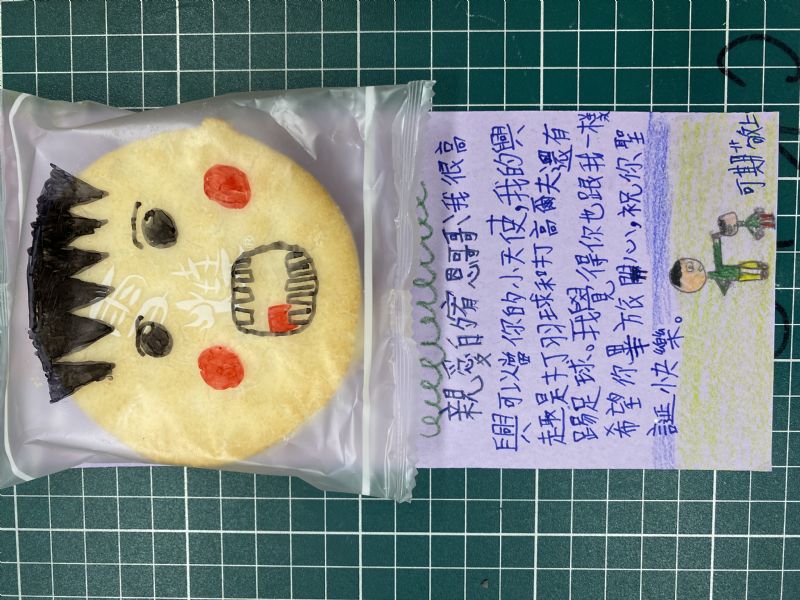 親愛的宥恩哥哥、我很高
興可以當你的小天使,我的興
趣是打羽球和打高爾夫還有
踢足球、我覺得你也跟我一樣
希望你畢旅開心,祝你聖
誕快樂。
可期敬上